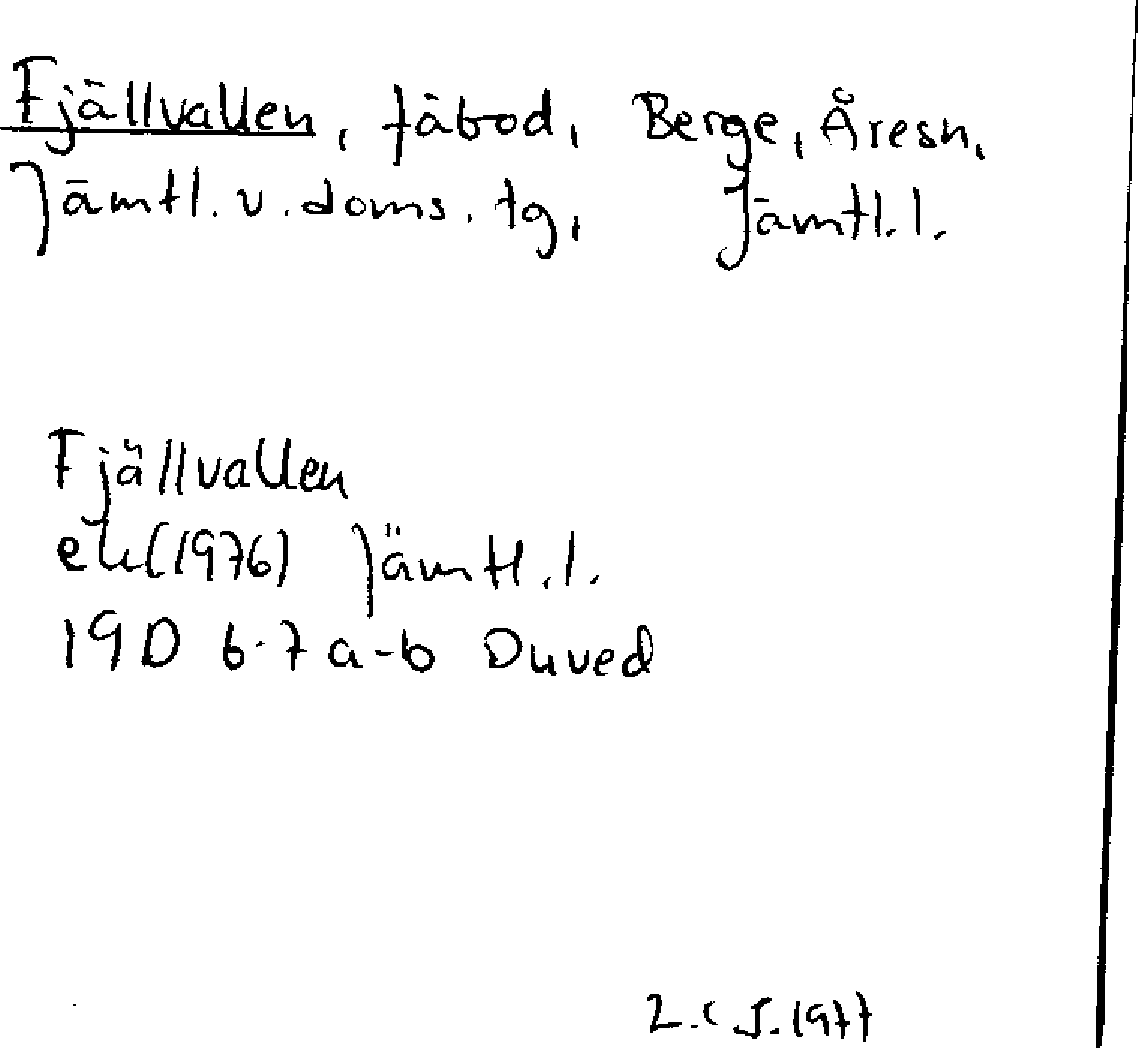 Fjällvallen, fäbod, Berge, Åresn,
Jämtl. v. doms. tg, Jämtl. l.
Fjällvallen
ek (1976) Jämtl. l.
19D 6-7 a-b Duved
1977